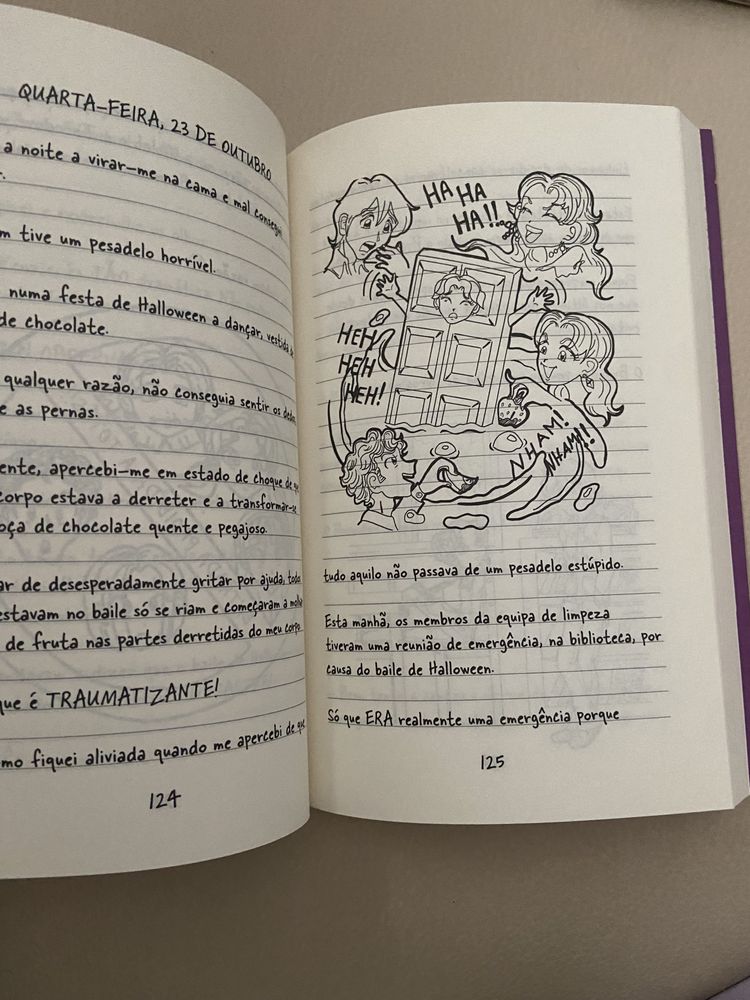 QUARTA-FEIRA, 23 DE OUTUBRO
a noite a virar-me na cama e mal consegui
tive um pesadelo horrível.
numa festa de Halloween a dançar, vestida
de chocolate.
qualquer razão, não conseguia sentir os dedos
as pernas.
apercebi-me em estado de choque de que
corpo estava a derreter e a transformar-se
de chocolate quente e pegajoso.
de desesperadamente gritar por ajuda, todos
estavam no baile só se riam e começaram a
de fruta nas partes derretidas do meu corpo.
que é TRAUMATIZANTE!
fiquei aliviada quando me apercebi de que
124
HA HA
HA!!
HEH
HEH
HEH!
NHAM!
NHAM!!
tudo aquilo não passava de um pesadelo estúpido.
Esta manhã, os membros da equipa de limpeza
tiveram uma reunião de emergência, na biblioteca, por
causa do baile de Halloween.
Só que ERA realmente uma emergência porque
125